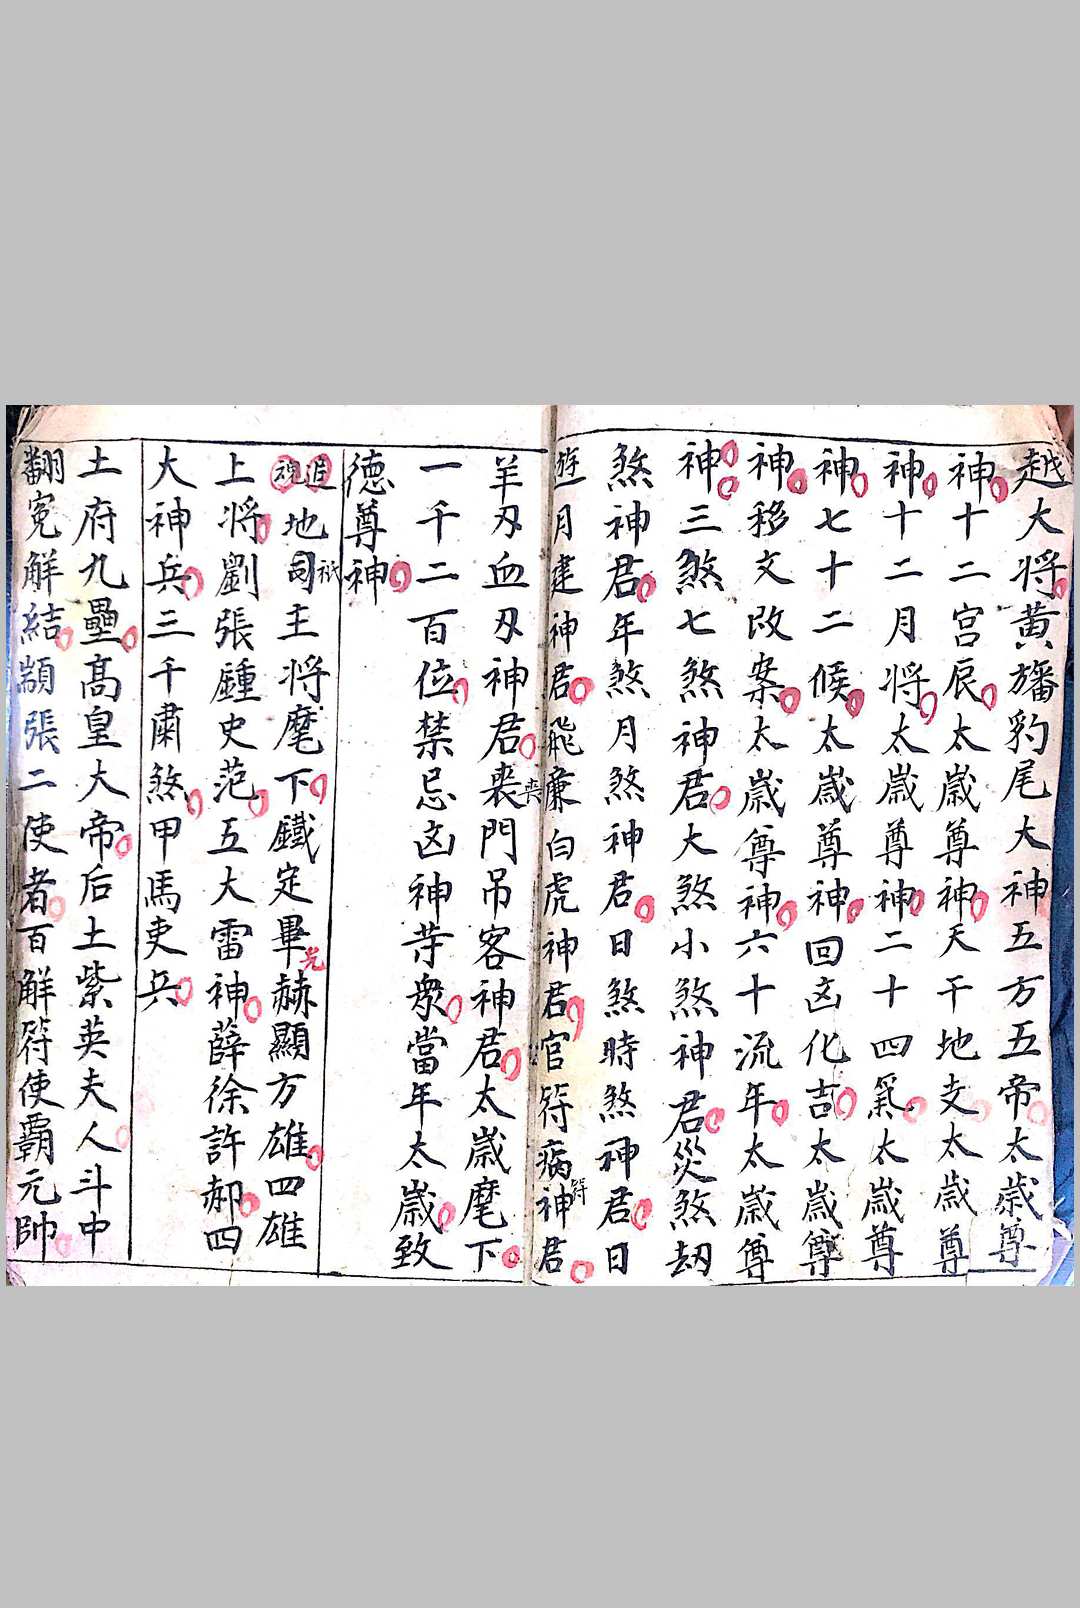 越大将黄旛豹尾大神五方五帝太歲尊
神十二宫辰太歲尊神天干地支太歲尊
神十二月将太歲尊神二十四氣太歲尊
神七十二候太歲尊神回凶化吉太歲尊
神移文改案太歲尊神六十流年太歲尊
神三煞七煞神君大煞小煞神君災煞劫
煞神君年煞月煞神君日煞時煞神君日
遊月建神君飛廉白虎神君官符病符神君
羊刃血刃神君喪門吊客神君太歲麾下
一千二百位禁忌凶神等衆當年太歲致
德尊神
追魂地祇司主将麾下鐵定畢赫顯方雄四雄
光
上将劉張鍾史范五大雷神薛徐許郝四
大神兵三千肅煞甲馬吏兵
土府九壘髙皇大帝后土紫英夫人斗中
翻寃解結顓張二使者百解符使覇元帥